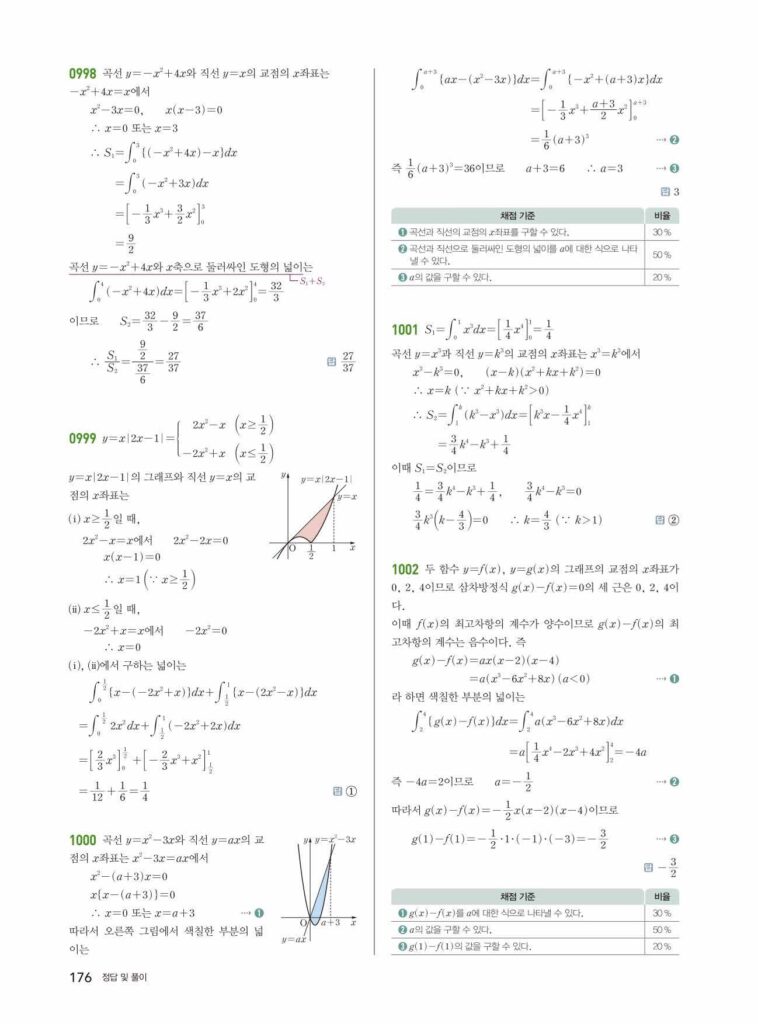 0998 곡선 y=-x²+4x와 직선 y=x의 교점의 x좌표는
-x²+4x=x에서
x²-3x=0, x(x-3)=0
∴ x=0 또는 x=3
∴ S₁=∫₀³{(-x²+4x)-x}dx
=∫₀³(-x²+3x)dx
=[-1/3 x³+3/2 x²]₀³
=9/2
곡선 y=-x²+4x와 x축으로 둘러싸인 도형의 넓이는
S₁+S₂
∫₀⁴(-x²+4x)dx=[-1/3 x³+2x²]₀⁴=32/3
이므로 S₂=32/3-9/2=37/6
∴ S₁/S₂=(9/2)/(37/6)=27/37
답 27/37
0999 y=x|2x-1|={2x²-x (x≥1/2)
-2x²+x (x≤1/2)
y=x|2x-1|의 그래프와 직선 y=x의 교
점의 x좌표는
(i) x≥1/2일 때,
2x²-x=x에서 2x²-2x=0
x(x-1)=0
∴ x=1 (∵ x≥1/2)
(ii) x≤1/2일 때,
-2x²+x=x에서 -2x²=0
∴ x=0
y
y=x|2x-1|
y=x
O 1/2 1 x
(i), (ii)에서 구하는 넓이는
∫₀^(1/2){x-(-2x²+x)}dx+∫_(1/2)^1{x-(2x²-x)}dx
=∫₀^(1/2) 2x²dx+∫_(1/2)^1(-2x²+2x)dx
=[2/3 x³]₀^(1/2)+[-2/3 x³+x²]_(1/2)^1
=1/12+1/6=1/4
답 ①
1000 곡선 y=x²-3x와 직선 y=ax의 교
점의 x좌표는 x²-3x=ax에서
x²-(a+3)x=0
x{x-(a+3)}=0
∴ x=0 또는 x=a+3 ⋯ ❶
따라서 오른쪽 그림에서 색칠한 부분의 넓
이는
y y=x²-3x
O a+3 x
y=ax
176 정답 및 풀이
∫₀^(a+3){ax-(x²-3x)}dx=∫₀^(a+3){-x²+(a+3)x}dx
=[-1/3 x³+(a+3)/2 x²]₀^(a+3)
=1/6(a+3)³ ⋯ ❷
즉 1/6(a+3)³=36이므로 a+3=6 ∴ a=3 ⋯ ❸
답 3
채점 기준 비율
❶ 곡선과 직선의 교점의 x좌표를 구할 수 있다. 30 %
❷ 곡선과 직선으로 둘러싸인 도형의 넓이를 a에 대한 식으로 나타
낼 수 있다. 50 %
❸ a의 값을 구할 수 있다. 20 %
1001 S₁=∫₀¹x³dx=[1/4 x⁴]₀¹=1/4
곡선 y=x³과 직선 y=k³의 교점의 x좌표는 x³=k³에서
x³-k³=0, (x-k)(x²+kx+k²)=0
∴ x=k (∵ x²+kx+k²>0)
∴ S₂=∫₁^k(k³-x³)dx=[k³x-1/4 x⁴]₁^k
=3/4 k⁴-k³+1/4
이때 S₁=S₂이므로
1/4=3/4 k⁴-k³+1/4, 3/4 k⁴-k³=0
3/4 k³(k-4/3)=0 ∴ k=4/3 (∵ k>1)
답 ②
1002 두 함수 y=f(x), y=g(x)의 그래프의 교점의 x좌표가
0, 2, 4이므로 삼차방정식 g(x)-f(x)=0의 세 근은 0, 2, 4이
다.
이때 f(x)의 최고차항의 계수가 양수이므로 g(x)-f(x)의 최
고차항의 계수는 음수이다. 즉
g(x)-f(x)=ax(x-2)(x-4)
=a(x³-6x²+8x) (a<0) ⋯ ❶
라 하면 색칠한 부분의 넓이는
∫₂⁴{g(x)-f(x)}dx=∫₂⁴a(x³-6x²+8x)dx
=a[1/4 x⁴-2x³+4x²]₂⁴=-4a
즉 -4a=2이므로 a=-1/2 ⋯ ❷
따라서 g(x)-f(x)=-1/2 x(x-2)(x-4)이므로
g(1)-f(1)=-1/2·1·(-1)·(-3)=-3/2 ⋯ ❸
답 -3/2
채점 기준 비율
❶ g(x)-f(x)를 a에 대한 식으로 나타낼 수 있다. 30 %
❷ a의 값을 구할 수 있다. 50 %
❸ g(1)-f(1)의 값을 구할 수 있다. 20 %